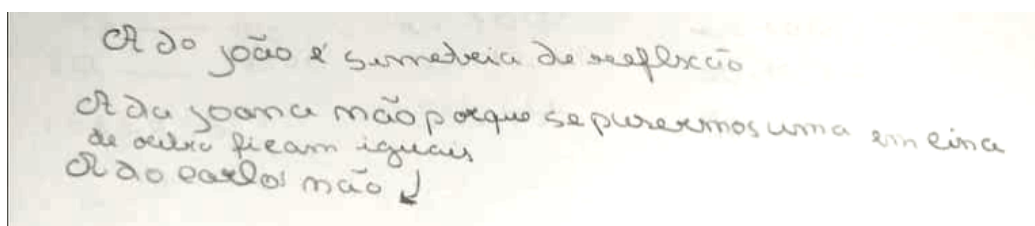 A do joão é simetria de reeflexão
A da joana não porque se puzermos uma em cima
de outra ficam iguais
A do carlos não